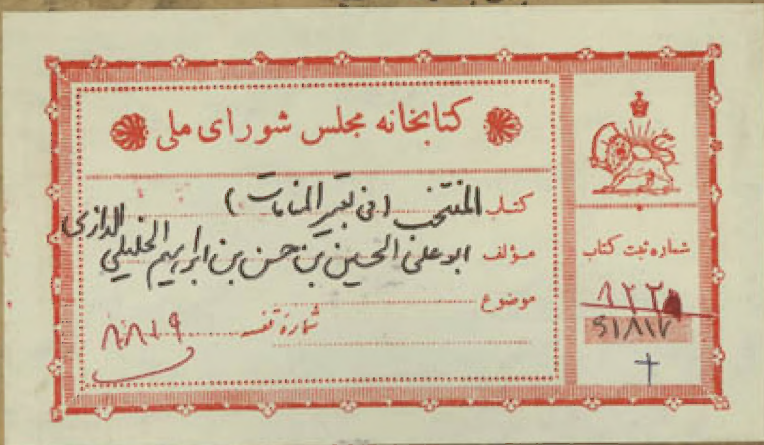 کتابخانه مجلس شورای ملی
کتاب المنتخب (فی تعبیر المنامات)
مؤلف ابوعلی الحسین بن حسن بن ابراهیم الخلیلی الداری
موضوع
شمارهٔ قفسه ۸۸۱۹
شماره ثبت کتاب
۸۲۲
۶۱۸۱۷